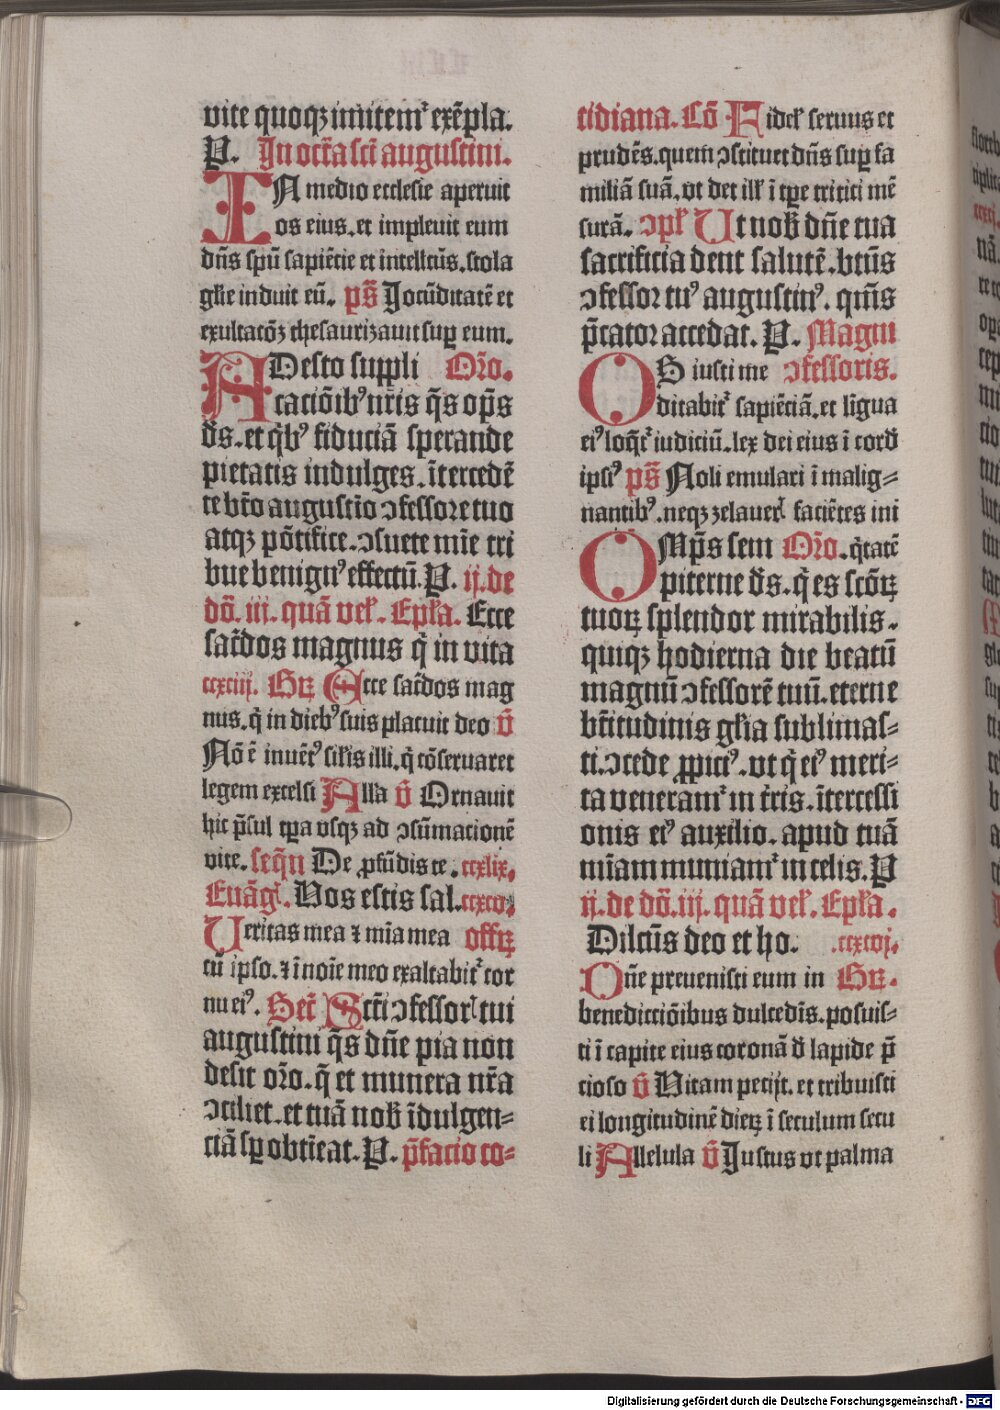 vite quoqꝫ imitemʳ exēpla.
P. In octa̅ sci̅ augustini.
IN medio ecclesie aperuit
os eius. et impleuit eum
dn̄s spū sapiēcie et intellctūs. stola
glīe induit eū. ps̄ Jocūditatē et
exultacōꝫ thesaurizauit suꝑ eum.
ADesto suppli Or̄o.
cacōibꝰ nr̄is q̄s op̄s
d̄s. et qͥbꝰ fiduciā sperande
pietatis indulges. ītercedē
te btō augustīo ↄfessore tuo
atqꝫ pōtifice. ↄsuete mīe tri
bue benignꝰ effectū. P. ij. de
dō. iij. quā vel̄. Ep̄la. Ecce
sac̄dos magnus qͥ in vita
ccxciij. Gꝝ Ecce sac̄dos mag
nus. qͥ in diebꝰ suis placuit deo v̄
Nō ē inuētꝰ sil̄is illi. qͥ cōseruaret
legem excelsi Alla v̄ Ornauit
hic p̄sul tp̄a vsqꝫ ad ↄsūmacionē
vite. seq̄n De ꝓfūdis te. ccxlix.
Euāgl. Vos estis sal. ccxcv.
Veritas mea ⁊ mīa mea offꝝ
cū ipso. ⁊ ī noīe meo exaltabitʳ cor
nu eiꝰ. Secr̄ Scti ↄfessorl tui
augustini q̄s dn̄e pia non
desit or̄o. q̄ et munera nr̄a
ↄciliet. et tuā nob̄ īdulgen⸗
ciā sꝑ obtīeat. P. p̄facio co⸗
tidiana. Cō Fidel̄ seruus et
prudēs. quem ↄstituet dn̄s suꝑ fa
miliā suā. vt det ill̄ ī tꝑe tritici mē
surā. ↄpl̄ Ut nob̄ dn̄e tua
sacrificia dent salutē. btūs
ↄfessor tuꝰ augustinꝰ. qm̄s
p̄cator accedat. P. Magni
OS iusti me ↄfessoris.
ditabitʳ sapiēciā. et līgua
eiꝰ loq̄tʳ iudiciū. lex dei eius ī cord̄
ipsiꝰ ps̄ Noli emulari ī malig⸗
nantibꝰ. neqꝫ zelauerl faciētes ini
OMp̄s sem Or̄o. q̄tatē
piterne d̄s. qͥ es scōꝝ
tuoꝝ splendor mirabilis.
quiqꝫ hodierna die beatū
magnū ↄfessorē tuū. eterne
bt̄itudinis gl̄ia sublimas⸗
ti. ↄcede ꝓpiciꝰ. vt qͥ eiꝰ meri⸗
ta veneramʳ in tr̄is. ītercessi
onis eiꝰ auxilio. apud tuā
mīam muniamʳ in celis. P
ij. de dō. iij. quā vel̄. Ep̄la.
Dilctūs deo et ho. ccxcvj.
Dn̄e preuenisti eum in Gꝝ.
benediccōibus dulcedīs. posuis⸗
ti ī capite eius coronā d̄ lapide p̄
cioso v̄ Vitam pecijt. et tribuisti
ei longitudinē dieꝝ ī seculum secu
li Allelula v̄ Justus vt palma
Digitalisierung gefördert durch die Deutsche Forschungsgemeinschaft - DFG